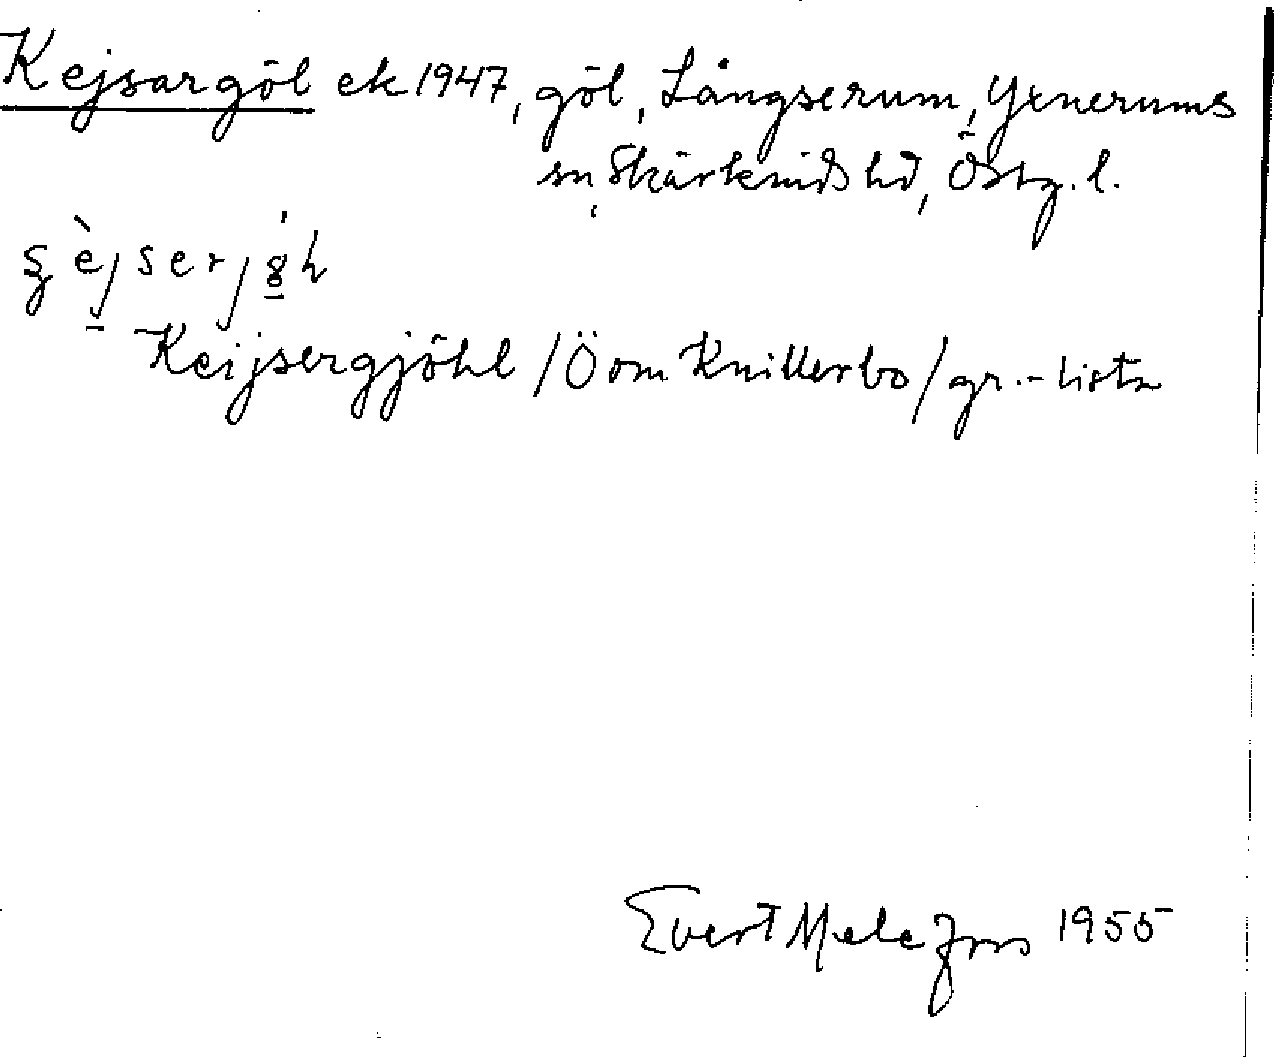 Kejsargöl ek 1947, göl, Långserum, Yxnerums
sn, Skärkinds hd, Östg. l.
Keijsergjöhl /Ö om Knillerbo/ gr.-lista
Evert Melefors 1955